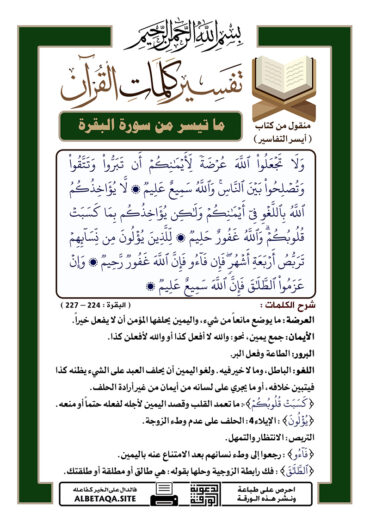 بسم الله الرحمن الرحيم
تفسير كلمات القرآن
ما تيسر من سورة البقرة
منقول من كتاب
( أيسر التفاسير )
وَلَا تَجْعَلُوا۟ ٱللَّهَ عُرْضَةً لِّأَيْمَـٰنِكُمْ أَن تَبَرُّوا۟ وَتَتَّقُوا۟
وَتُصْلِحُوا۟ بَيْنَ ٱلنَّاسِ وَٱللَّهُ سَمِيعٌ عَلِيمٌ ۞ لَّا يُؤَاخِذُكُمُ
ٱللَّهُ بِٱللَّغْوِ فِىٓ أَيْمَـٰنِكُمْ وَلَـٰكِن يُؤَاخِذُكُم بِمَا كَسَبَتْ
قُلُوبُكُمْ وَٱللَّهُ غَفُورٌ حَلِيمٌ ۞ لِّلَّذِينَ يُؤْلُونَ مِن نِّسَآئِهِمْ
تَرَبُّصُ أَرْبَعَةِ أَشْهُرٍ فَإِن فَآءُو فَإِنَّ ٱللَّهَ غَفُورٌ رَّحِيمٌ ۞ وَإِنْ
عَزَمُوا۟ ٱلطَّلَـٰقَ فَإِنَّ ٱللَّهَ سَمِيعٌ عَلِيمٌ ۞
شرح الكلمات : ( البقرة : 224 – 227 )
العرضة : ما يوضع مانعاً من شيء، واليمين يحلفها المؤمن أن لا يفعل خيراً.
الأيمان: جمع يمين، نحو: والله لا أفعل كذا أو والله لأفعلن كذا.
البرور: الطاعة وفعل البر.
اللغو: الباطل، وما لا خير فيه. ولغو اليمين أن يحلف العبد على الشيء يظنه كذا
فيتبين خلافه، أو ما يجري على لسانه من أيمان من غير إرادة الحلف.
﴿كَسَبَتْ قُلُوبُكُمْ﴾: ما تعمد القلب وقصد اليمين لأجله لفعله حتماً أو منعه.
﴿يُؤْلُونَ﴾ : الإيلاء4: الحلف على عدم وطء الزوجة.
التربص : الانتظار والتمهل.
﴿فَآءُو﴾ : رجعوا إلى وطء نسائهم بعد الامتناع عنه باليمين.
﴿ٱلطَّلَـٰقَ﴾ : فك رابطة الزوجية وحلها بقوله : هي طالق أو مطلقة أو طلقتك.
احرص على طباعة
ونشر هذه الورقة
الورقة الدعوية
فالدال على الخير كفاعله
ALBETAQA.SITE